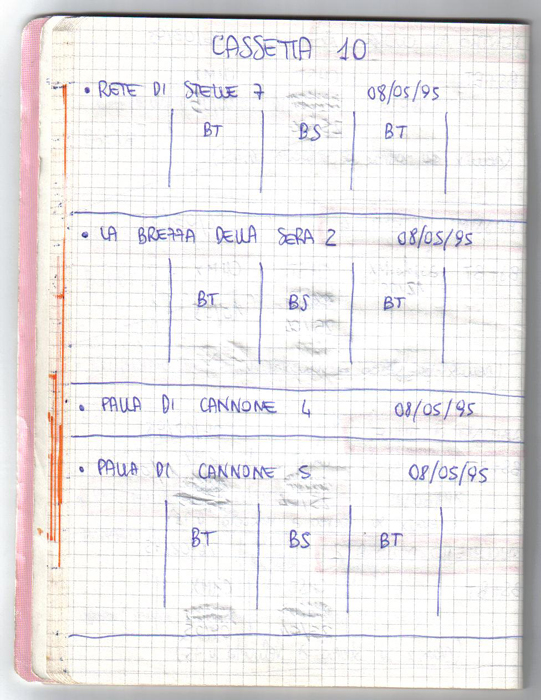 CASSETTA 10
• RETE DI STELLE 7 08/05/95
BT BS BT
• LA BREZZA DELLA SERA 2 08/05/95
BT BS BT
• PALLA DI CANNONE 4 08/05/95
• PALLA DI CANNONE 5 08/05/95
BT BS BT